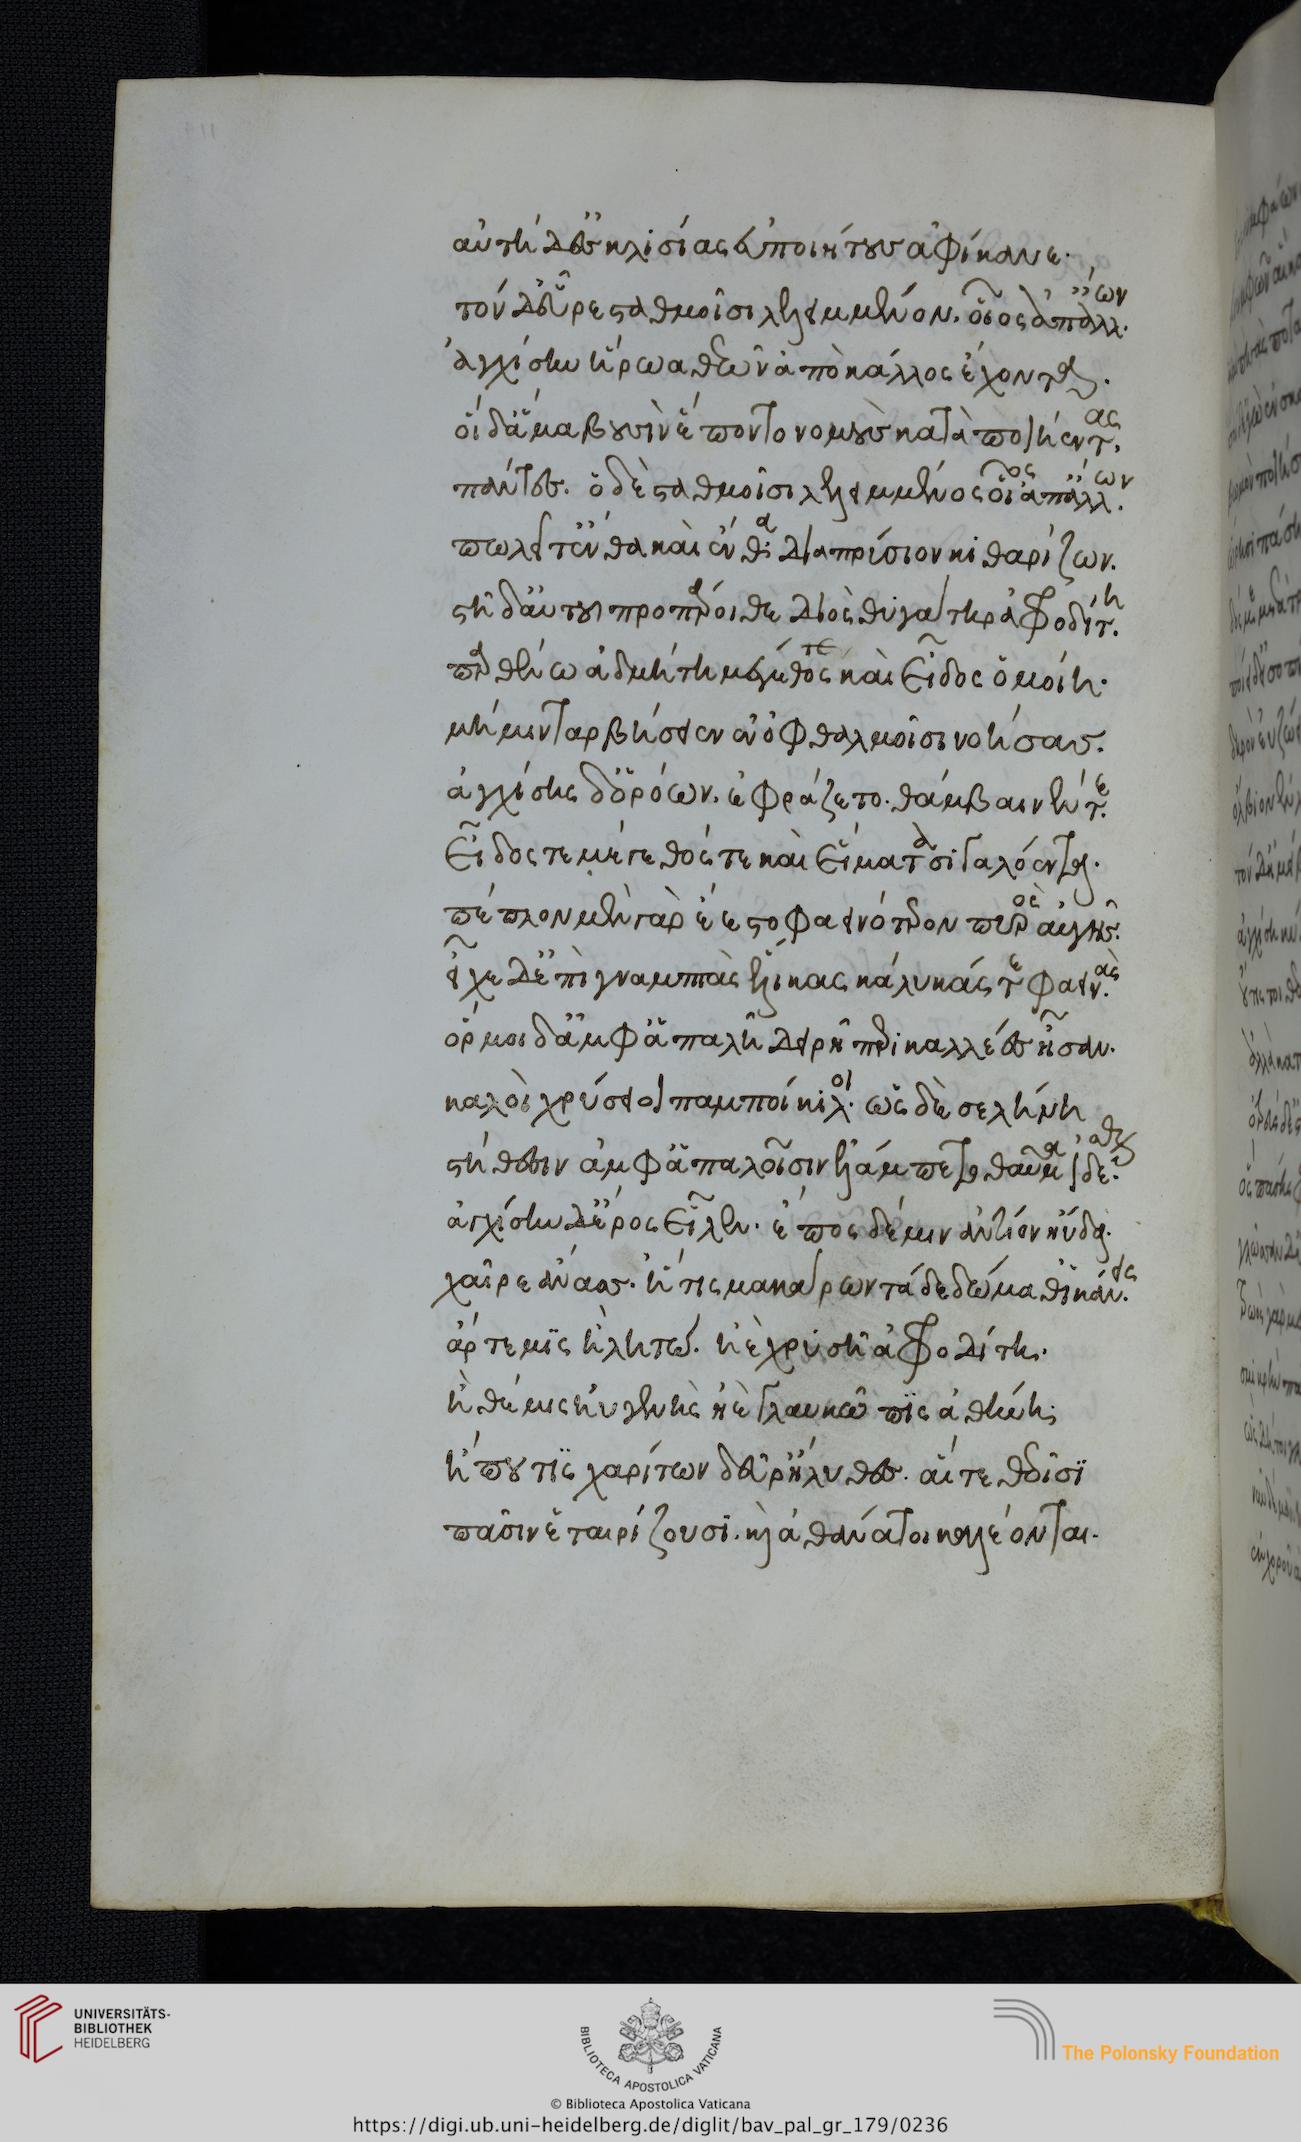 αὐτὴ δ' ἐς κλισίας εὐποιήτους ἀφίκανε.
τὸν δ' εὗρε σταθμοῖσι λελειμμένον. οἶος ἀπ' ἄλλων
ἀγχίσην ἥρωα θεῶν ἀπὸ κάλλος ἔχοντα.
οἱ δ' ἅμα βουσὶν ἕποντο νομοὺς κατὰ ποιήεντας
πάντες. ὁ δὲ σταθμοῖσι λελειμμένος οἶος ἀπ' ἄλλων
πωλεῖτ' ἔνθα καὶ ἔνθα διαπρύσιον κιθαρίζων.
στῆ δ' αὐτοῦ προπάροιθε διὸς θυγάτηρ ἀφροδίτη
παρθένω ἀδμήτη μέγεθός τε καὶ εἶδος ὁμοίη.
μή μιν ταρβήσειεν ἐν ὀφθαλμοῖσι νοήσας.
ἀγχίσης δ' ὁρόων. ἐφράζετο. θάμβαινέν τε
εἶδός τε μέγεθός τε καὶ εἵματα σιγαλόεντα.
πέπλον μὲν γὰρ ἕεστο φαεινότερον πυρὸς αὐγῆς.
εἶχε δ' ἐπιγναμπτὰς ἕλικας κάλυκάς τε φαεινάς
ὅρμοι δ' ἀμφ' ἁπαλῆ δειρῆ περικαλλέες ἦσαν.
καλοὶ χρύσειοι παμποίκιλοι. ὡς δὲ σελήνη
στήθεσιν ἀμφ' ἁπαλοῖσιν ἐλάμπετο θαῦμα ἰδέσθαι
ἀγχίσην δ' ἔρος εἷλεν. ἔπος δέ μιν ἀντίον ηὔδα.
χαῖρε ἄνασσ'. ἥ τις μακάρων τάδε δώμαθ' ἱκάνεις
ἄρτεμις ἢ λητώ. ἠὲ χρυσῆ ἀφροδίτη.
ἢ θέμις ἠϋγενὴς ἠὲ γλαυκῶπις ἀθήνη
ἤ που τις χαρίτων δεῦρ' ἤλυθες. αἵ τε θεοῖσι
πᾶσιν ἑταιρίζουσι. καὶ ἀθάνατοι καλέονται.
UNIVERSITÄTS-
BIBLIOTHEK
HEIDELBERG
BIBLIOTECA APOSTOLICA VATICANA
The Polonsky Foundation
© Biblioteca Apostolica Vaticana
https://digi.ub.uni-heidelberg.de/diglit/bav_pal_gr_179/0236